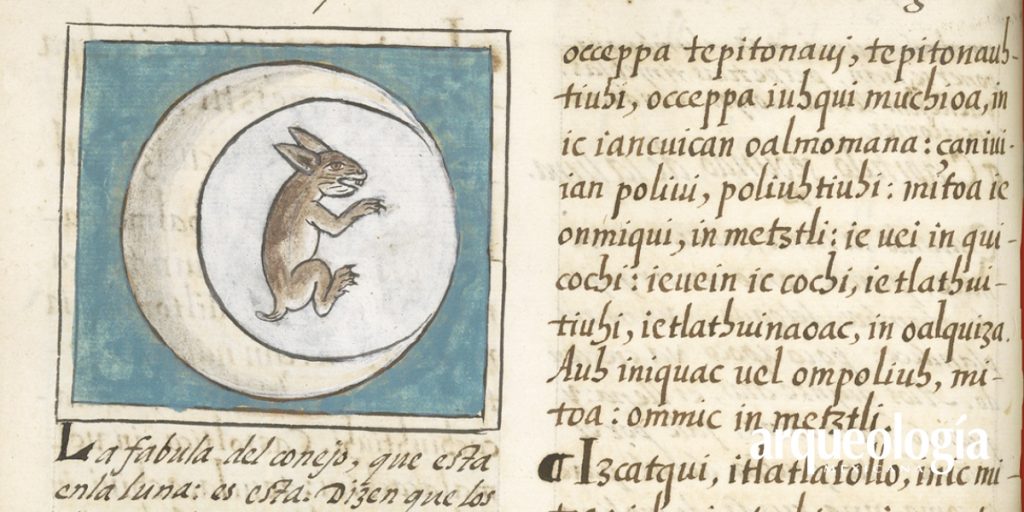 La fabula del conejo, que esta
enla luna: es esta. Dizen que los
occeppa tepitonauj, tepitonauh-
tiuhi, occeppa iuhqui muchioa, in
ic iancuican oalmomana: çaniui-
ian poliui, poliuhtiuhi: mitoa ie
onmiqui, in metztli: ie uei in qui-
cochi: ieuein ic cochi, ietlathui-
tiuhi, ietlathuinaoac, in oalquiza.
Auh iniquac uel ompoliuh, mi-
toa: ommic in metztli.
¶ Izcatqui, itlatlatollo, inic mi-
arqueología
MEXICANA